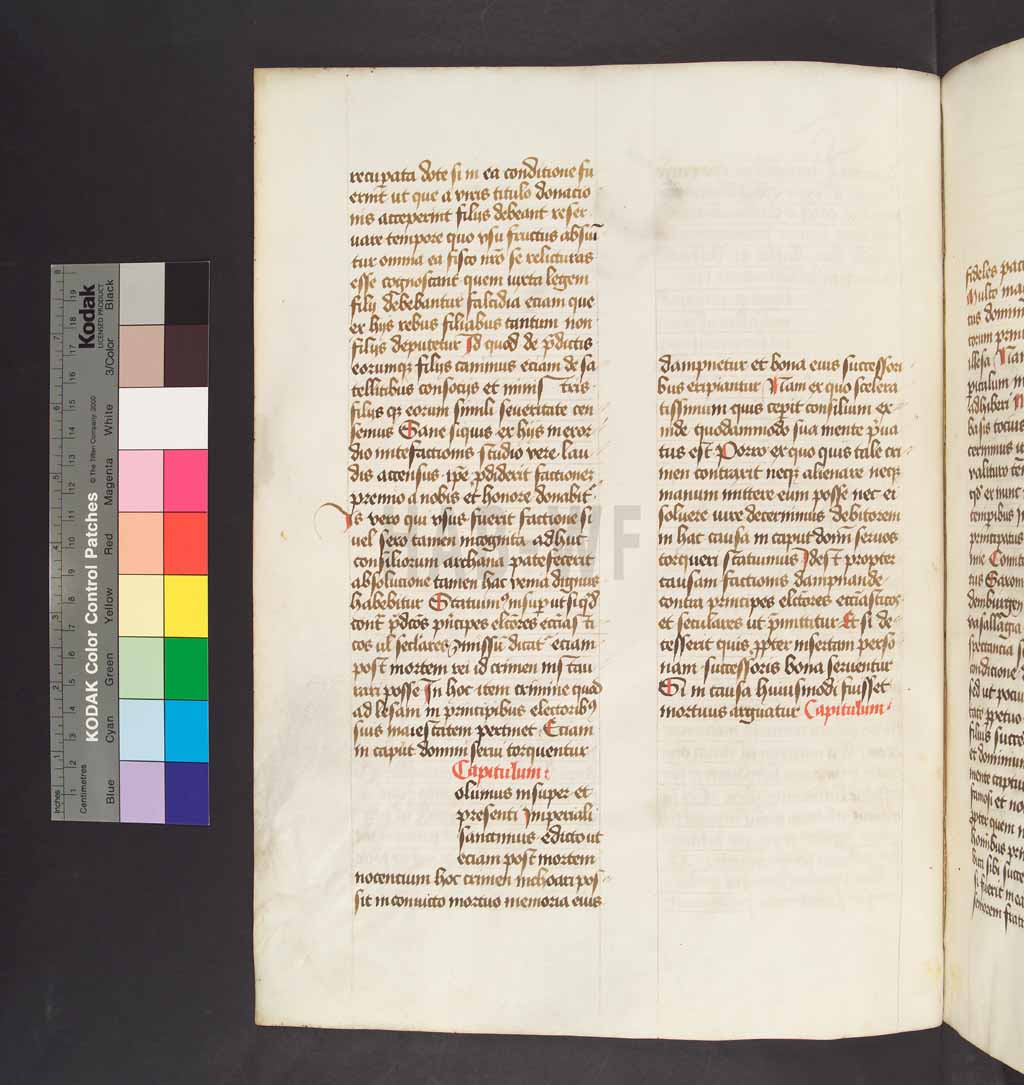 recupata dote si in ea conditione fu
erint ut que a viris titulo donacio
nis acceperint filijs debeant reser
uare tempore quo vsu fructus absum
tur omnia ea fisco nro se relicturas
esse cognoscant quem iuxta legem
filij debebantur falcidia eciam que
ex hijs rebus filiabus tantum non
filijs deputetur Id quod de pdictis
eorumqz filijs cauimus eciam de sa
tellitibus consocijs et minis tris
filijs qz eorum simili seueritate cen
semus Sane siquis ex hijs in exor
dio inite factionis studio vere lau
dis accensus ipe pdiderit factionem
premio a nobis et honore donabit
Is vero qui vsus fuerit factione si
vel sero tamen incognita adhuc
consiliorum archana patefecerit
absolucione tamen hac venia dignus
habebitur Statuim9 insup ut siqd
cont pdcos pncipes elcores eccias ti
cos ul seclares missu dicat eciam
post mortem rei id crimen ins tau
rari posse In hoc item crimine quod
ad lesam in principibus electorib9
suis maiestatem pertinet Eciam
in caput domini serui torquentur
Capitulum
olumus insuper et
presenti Imperiali
sanctimus edicto ut
eciam post mortem
nocencium hoc crimen inchoari pos
sit in conuicto mortuo memoria eius
dampnetur et bona eius successori
bus eripiantur Nam ex quo scelera
tissimum quis cepit consilium ex
inde quodammodo sua mente puia
tus est Porro ex quo quis tale cri
men contraxit neqz alienare neqz
manum mittere eum posse nec ei
soluere iure decernimus debitorem
in hac causa in caput domi seruos
torqueri statuimus Id est propter
causam factionis dampnande
contra principes elctores ecciasticos
et seculares ut pmittitur Et si de
cesserit quis ppter incertam perso
nam successoris bona seruentur
Si in causa huiusmodi fuisset
mortuus arguatur Capitulum
KODAK Color Control Patches
© The Tiffen Company, 2000
Kodak
LICENSED PRODUCT
Inches
Centimetres
Blue
Cyan
Green
Yellow
Red
Magenta
White
3/Color
Black